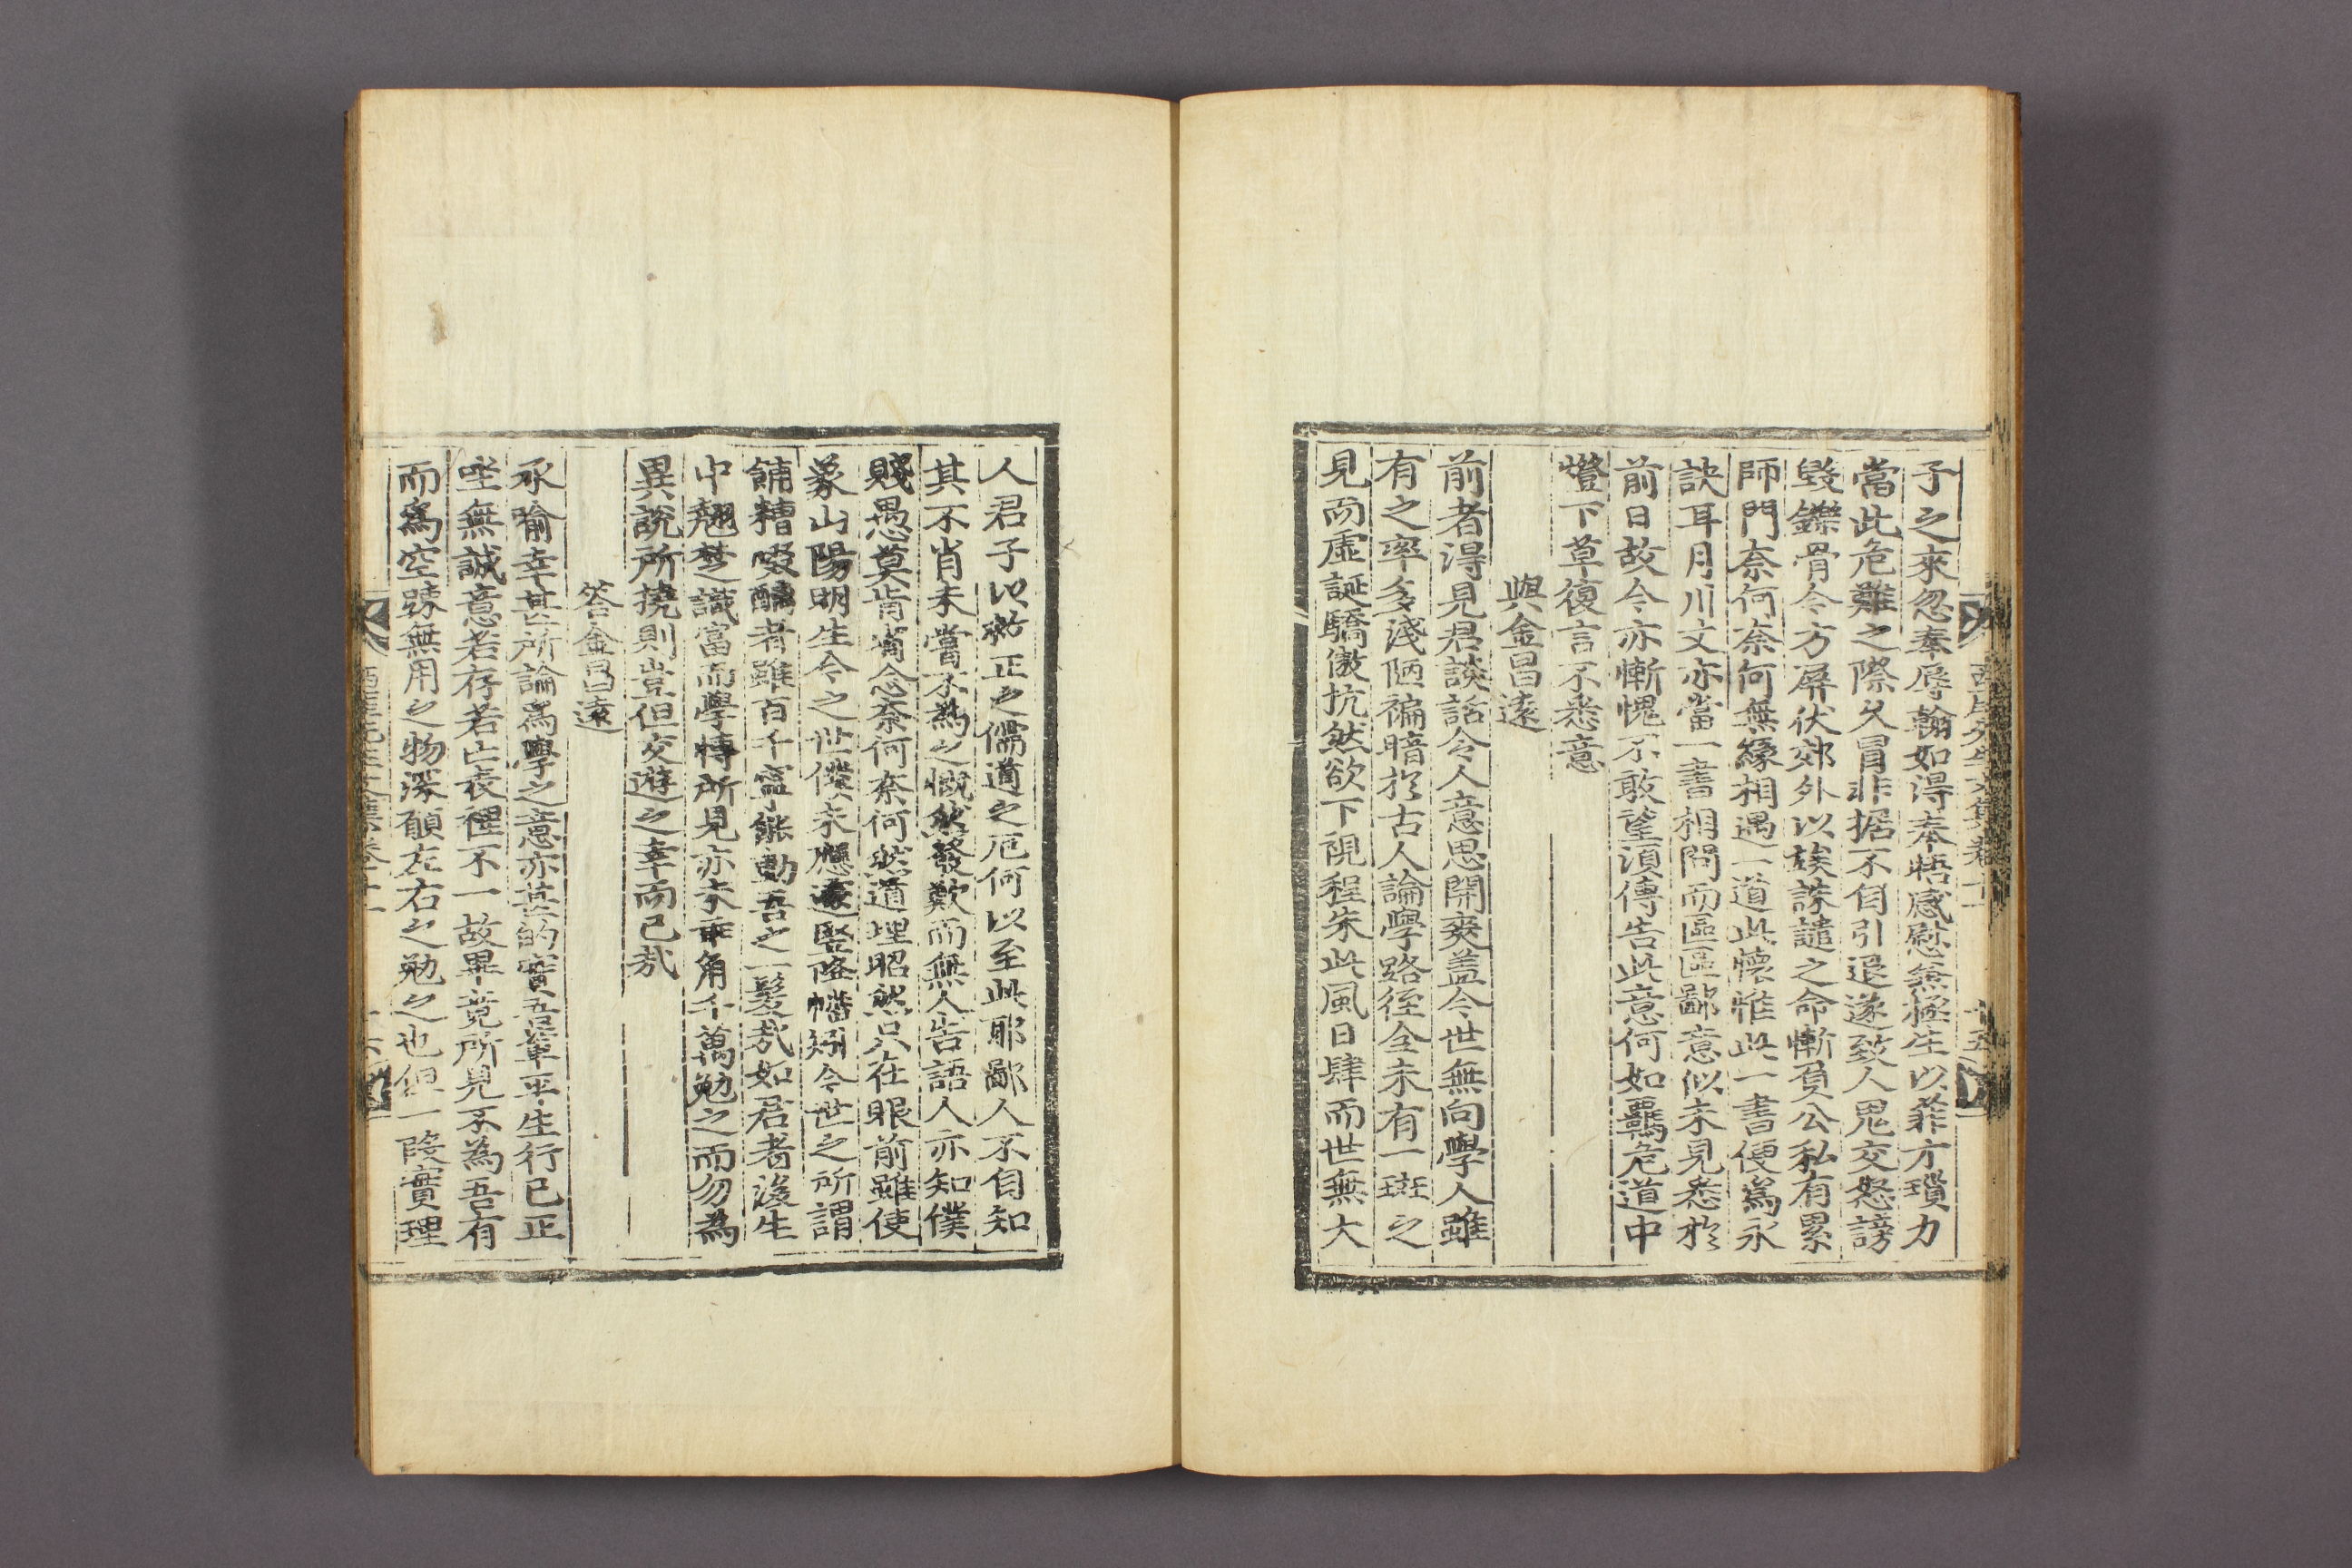 子之來忽奉辱翰如得奉晤感慰無極生以菲才瑣力
當此危難之際久冒非據不自引退遂致人鬼交怒謗
毀鑠骨今方屛伏郊外以俟誅譴之命慚負公私有累
師門奈何奈何無緣相遇一道此懷惟此一書便爲永
訣耳月川文亦當一書相問而區區鄙意似未見悉於
前日故今亦慚愧不敢望湏傳告此意何如羈危道中
燈下草復言不悉意
與金昌遠
前者得見君談話令人意思開爽盖今世無向學人雖
有之率多淺陋褊暗於古人論學路徑全未有一斑之
見而虛誕驕傲抗然欲下視程朱此風日肆而世無大
人君子以弊正之儒道之厄何以至此耶鄙人不自知
其不肖未嘗不為之慨然發歎而無人告語人亦知僕
賤愚莫肯省念奈何奈何然道理昭然只在眼前雖使
象山陽明生今之世僕未應遽竪降幡矧今世之所謂
餔糟啜醨者雖百千寧能動吾之一髮哉如君者後生
中翹楚識富而學博所見亦未乖角千萬勉之而勿為
異說所撓則豈但交遊之幸而已哉
答金昌遠
承喻幸甚所論爲學之意亦甚的實吾輩平生行己正
坐無誠意若存若亡表裡不一故畢竟所見不為吾有
而爲空踈無用之物深願左右之勉之也但一段實理